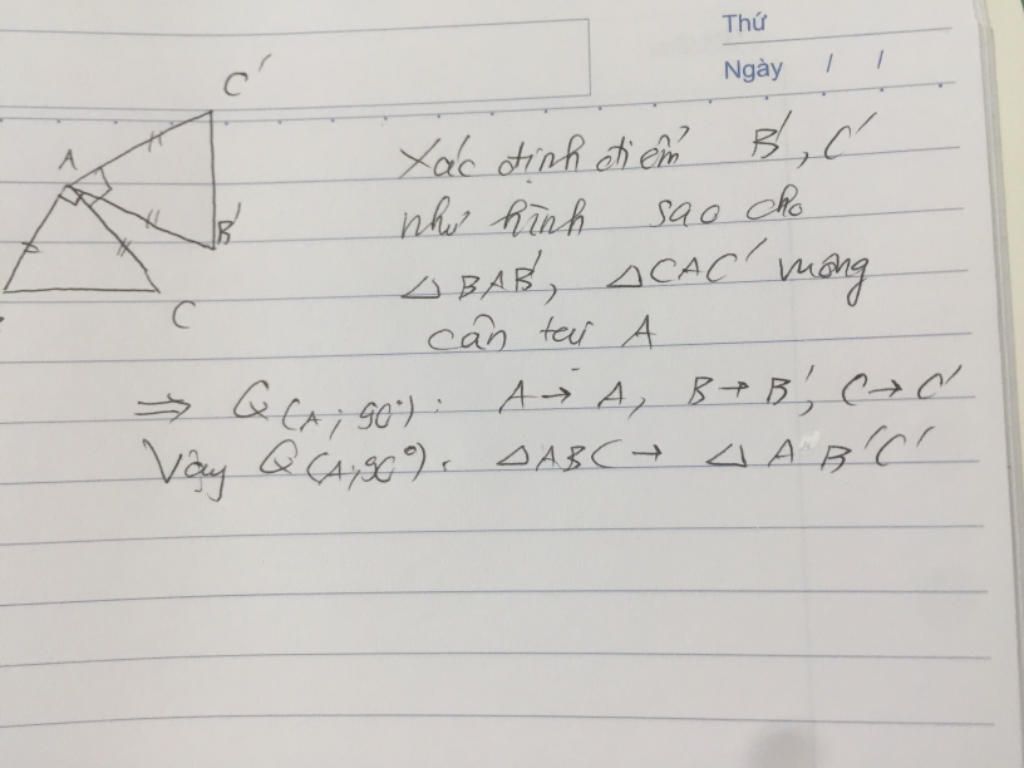 Thứ
Ngày / /
C'
A
B'
C
Xác định điểm B', C'
như hình sao cho
△BAB', △CAC' vuông
cân tại A
⇒ Q(A; 90°): A → A, B → B', C → C'
Vậy Q(A; 90°): △ABC → △AB'C'